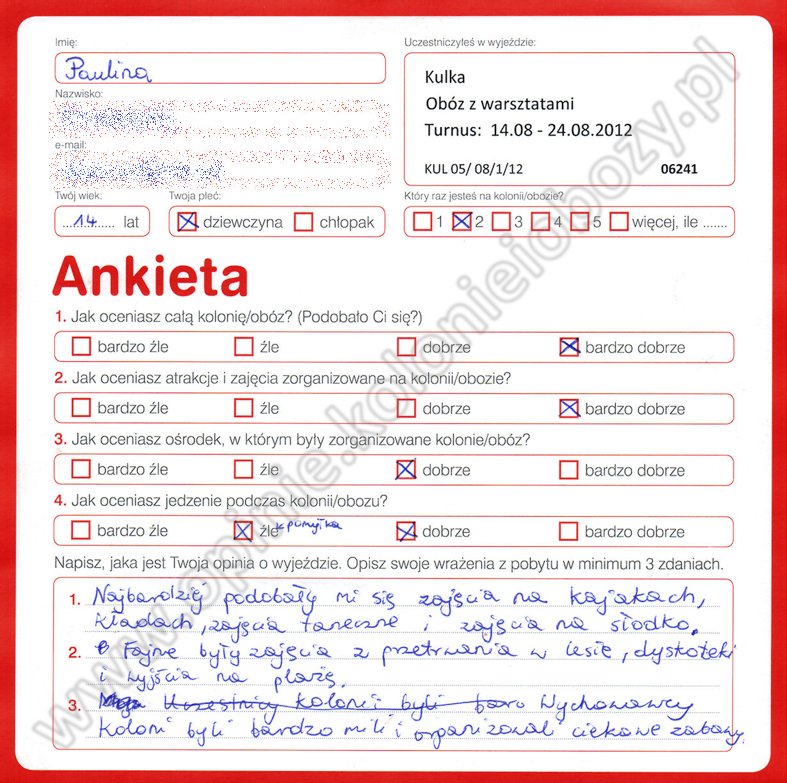 Imię:
Uczestniczyłeś w wyjeździe:
Paulina
Kulka
Obóz z warsztatami
Turnus: 14.08 - 24.08.2012
KUL 05/ 08/1/12 06241
Nazwisko:
e-mail:
Twój wiek: Twoja płeć: Który raz jesteś na kolonii/obozie?
...14..... lat dziewczyna chłopak 1 2 3 4 5 więcej, ile .......
Ankieta
1. Jak oceniasz całą kolonię/obóz? (Podobało Ci się?)
bardzo źle źle dobrze bardzo dobrze
2. Jak oceniasz atrakcje i zajęcia zorganizowane na kolonii/obozie?
bardzo źle źle dobrze bardzo dobrze
3. Jak oceniasz ośrodek, w którym były zorganizowane kolonie/obóz?
bardzo źle źle dobrze bardzo dobrze
4. Jak oceniasz jedzenie podczas kolonii/obozu?
bardzo źle źle pomyłka dobrze bardzo dobrze
Napisz, jaka jest Twoja opinia o wyjeździe. Opisz swoje wrażenia z pobytu w minimum 3 zdaniach.
1. Najbardziej podobały mi się zajęcia na kajakach,
kładach, zajęcia taneczne i zajęcia na słodko.
2. Fajne były zajęcia z przetrwania w lesie, dyskoteki
i wyjścia na plażę.
3. Uczestnicy kolonii byli Wychowawcy
koloni byli bardzo mili i organizowali ciekawe zabawy.
www.opinie.kolonieiobozy.pl